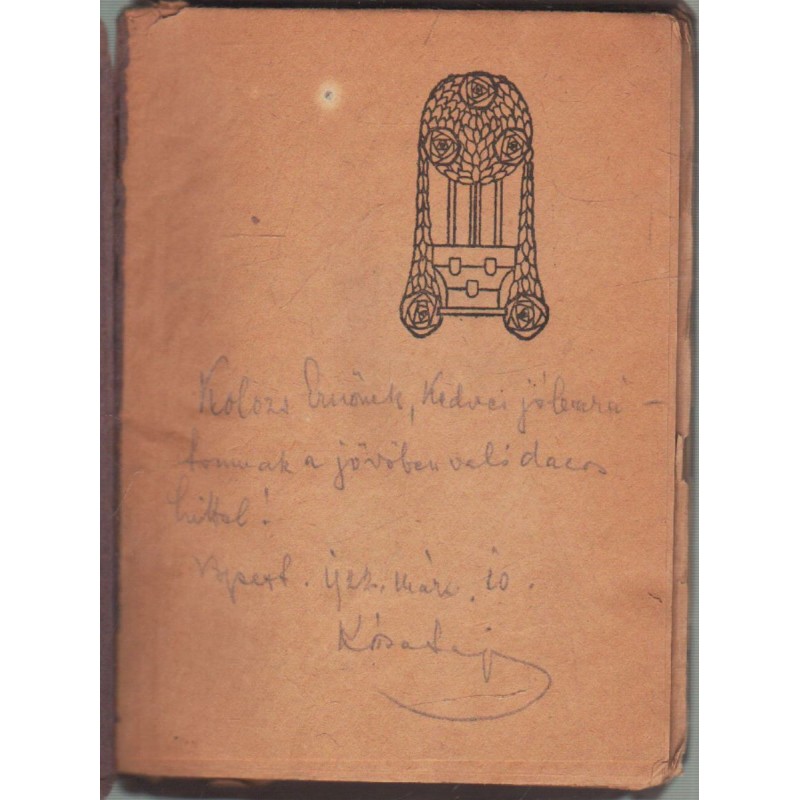 Kolozs Ernőnek, Kedves jóbará-
tomnak a jövőben való dacos
hittel!
Bpest. 922. márc. 10.